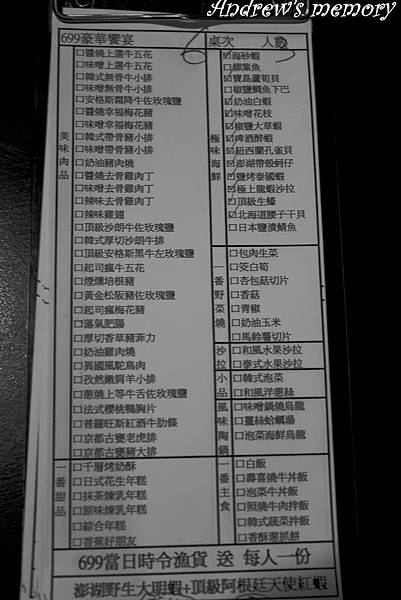 Andrew's memory
699豪華饗宴
桌次 人數
美味肉品
□醬燒上選牛五花
□味噌上選牛五花
□韓式無骨牛小排
□味噌無骨牛小排
□安格斯霜降牛佐玫瑰鹽
□醬燒幸福梅花豬
□味噌幸福梅花豬
□韓式帶骨豬小排
□味噌帶骨豬小排
□奶油豬肉燒
□醬燒去骨雞肉丁
□味噌去骨雞肉丁
□辣味去骨雞肉丁
□辣味雞翅
□頂級沙朗牛佐玫瑰鹽
□韓式厚切沙朗牛排
□頂級安格斯黑牛左玫瑰鹽
□起司瘋牛五花
□煙燻培根豬
□黃金松阪豬佐玫瑰鹽
□起司瘋梅花豬
□滿氣肥腸
□厚切香草豬菲力
□奶油雞肉燒
□異國風鴕鳥肉
□孜然嫩肩羊小排
□蔥燒上等牛舌佐玫瑰鹽
□法式櫻桃鴨胸片
□普羅旺斯紅酒牛肋條
□京都古甕老虎排
□京都古甕豬大排
一番甜品
□千層烤奶酥
□日式花生年糕
□抹茶煉乳年糕
□原味煉乳年糕
□綜合年糕
□香蕉好朋友
極味海鮮
☑海砂蝦
□柳葉魚
☑寶島蘆筍貝
□椒鹽鯛魚下巴
☑奶油白蝦
☑味噌花枝
☑椒鹽大草蝦
☑啤酒醉蝦
☑紐西蘭孔雀貝
☑澎湖帶殼蚵仔
☑鹽烤泰國蝦
☑極上龍蝦沙拉
□頂級生蠔
☑北海道腰子干貝
□日本鹽漬鯖魚
一番野菜燒
□包肉生菜
□筊白筍
□杏包菇切片
□香菇
□青椒
□奶油玉米
□馬鈴薯切片
沙拉
□和風水果沙拉
□泰式水果沙拉
小品
□韓式泡菜
□和風洋蔥絲
風味陶鍋
□味噌鍋燒烏龍
□薑絲蛤蠣湯
□泡菜海鮮烏龍
一番主食
□白飯
□壽喜燒牛丼飯
□泡菜牛丼飯
□照燒牛肉拌飯
□韓式蔬菜拌飯
□香酥蔥抓餅
699當日時令漁貨 送 每人一份
澎湖野生大明蝦+頂級阿根廷天使紅蝦